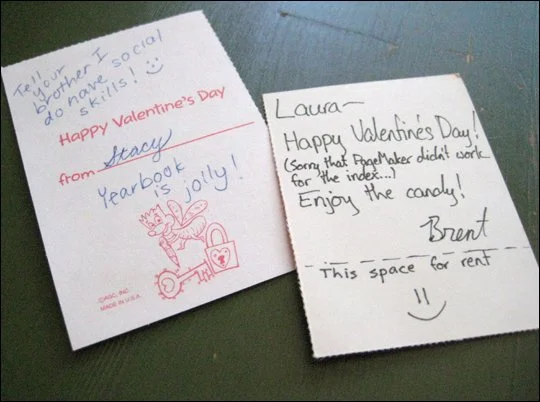 Tell
your
brother I
do have social
skills!
Happy Valentine's Day
from Stacy
Yearbook
is jolly!
©AGC, INC.
MADE IN U.S.A.
Laura—
Happy Valentine's Day!
(Sorry that PageMaker didn't work
for the index...)
Enjoy the candy!
Brent
This space for rent